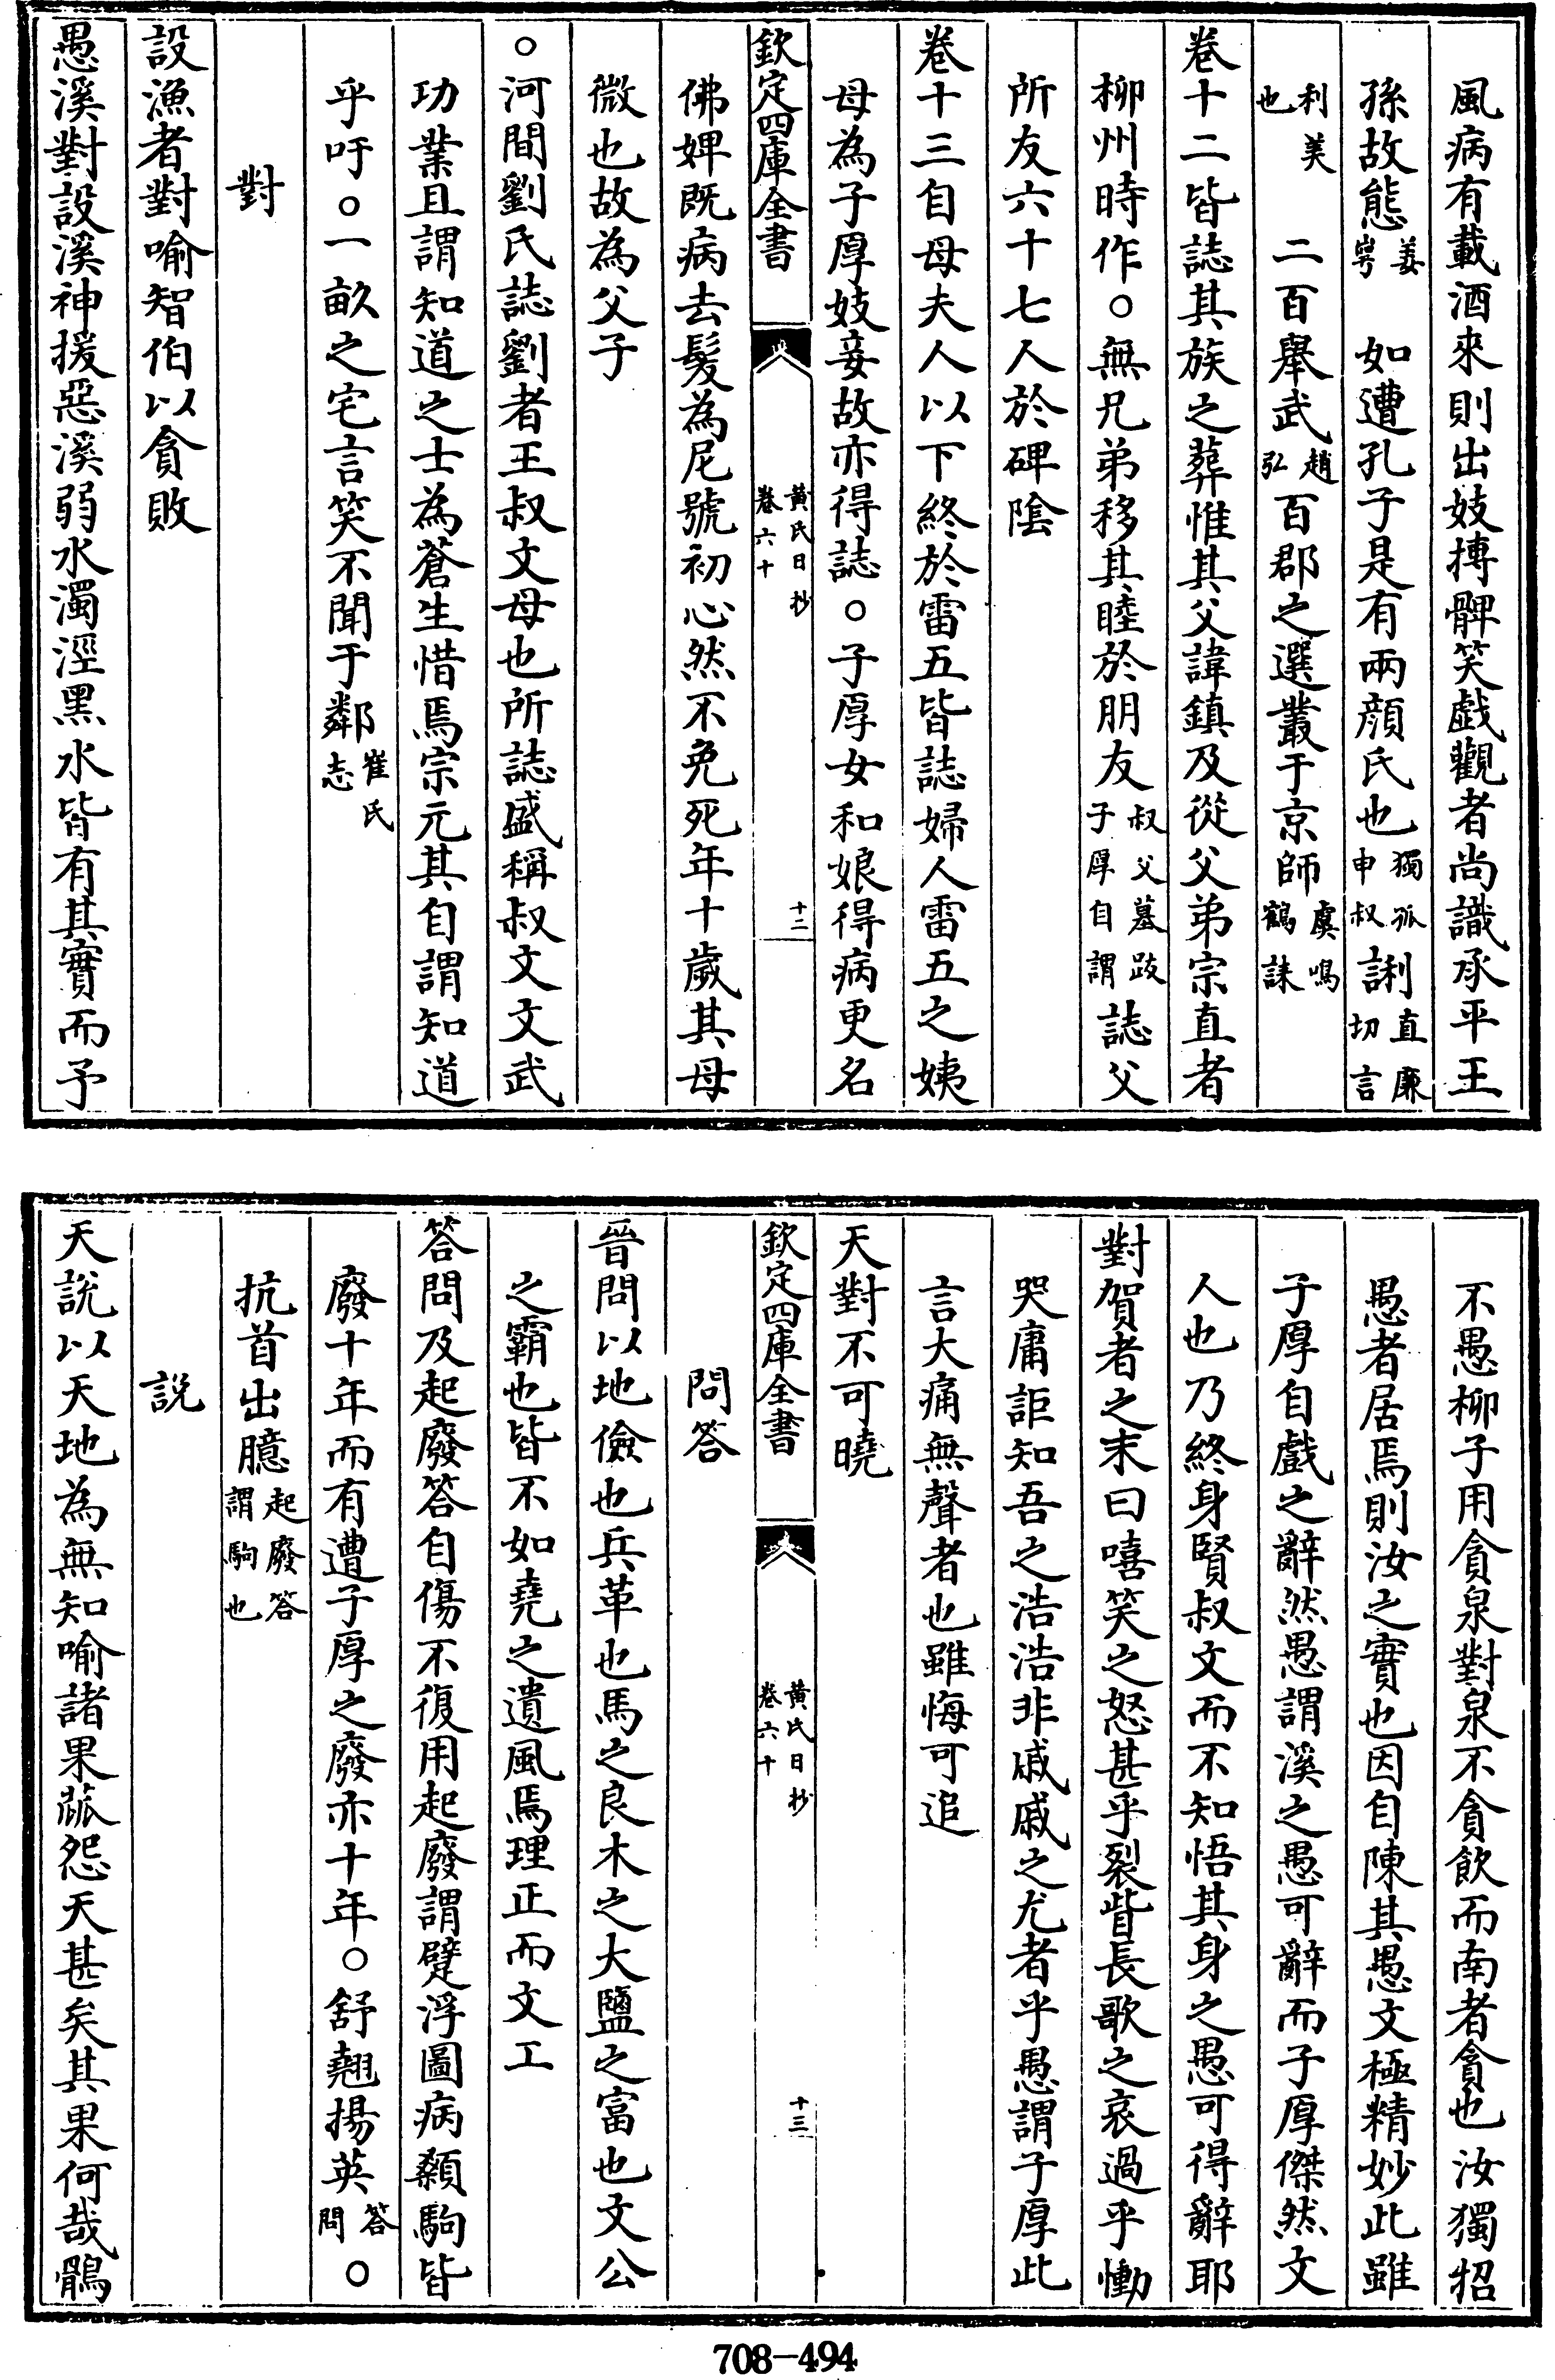 風病有載酒來則出妓搏髀笑戲觀者尚識承平王
孫故態姜崿 如遭孔子是有兩顏氏也獨孤申叔誗直廉切言
利美也 二百舉武趙弘百郡之選叢于京師虞鳴鶴誄
卷十二皆誌其族之葬惟其父諱鎮及從父弟宗直者
柳州時作○無兄弟移其睦於朋友叔父墓跂子厚自謂誌父
所友六十七人於碑陰
卷十三自母夫人以下終於雷五皆誌婦人雷五之姨
母為子厚妓妾故亦得誌○子厚女和娘得病更名
欽定四庫全書 黃氏日抄 卷六十 十二
佛婢既病去髮為尼號初心然不免死年十歲其母
微也故為父子
○河間劉氏誌劉者王叔文母也所誌盛稱叔文文武
功業且謂知道之士為蒼生惜焉宗元其自謂知道
乎吁○一畝之宅言笑不聞于鄰崔氏志
對
設漁者對喻智伯以貪敗
愚溪對設溪神援惡溪弱水濁涇黑水皆有其實而予
不愚柳子用貪泉對泉不貪飲而南者貪也汝獨招
愚者居焉則汝之實也因自陳其愚文極精妙此雖
子厚自戲之辭然愚謂溪之愚可辭而子厚傑然文
人也乃終身賢叔文而不知悟其身之愚可得辭耶
對賀者之末曰嘻笑之怒甚乎裂眥長歌之哀過乎慟
哭庸詎知吾之浩浩非戚戚之尤者乎愚謂子厚此
言大痛無聲者也雖悔可追
天對不可曉
欽定四庫全書 黃氏日抄 卷六十 十三
問答
晉問以地儉也兵革也馬之良木之大鹽之富也文公
之霸也皆不如堯之遺風焉理正而文工
答問及起廢答自傷不復用起廢謂躄浮圖病顙駒皆
廢十年而有遭子厚之廢亦十年○舒翹揚英答問○
抗首出臆起廢答謂駒也
說
天說以天地為無知喻諸果蓏怨天甚矣其果何哉鶻
708-494